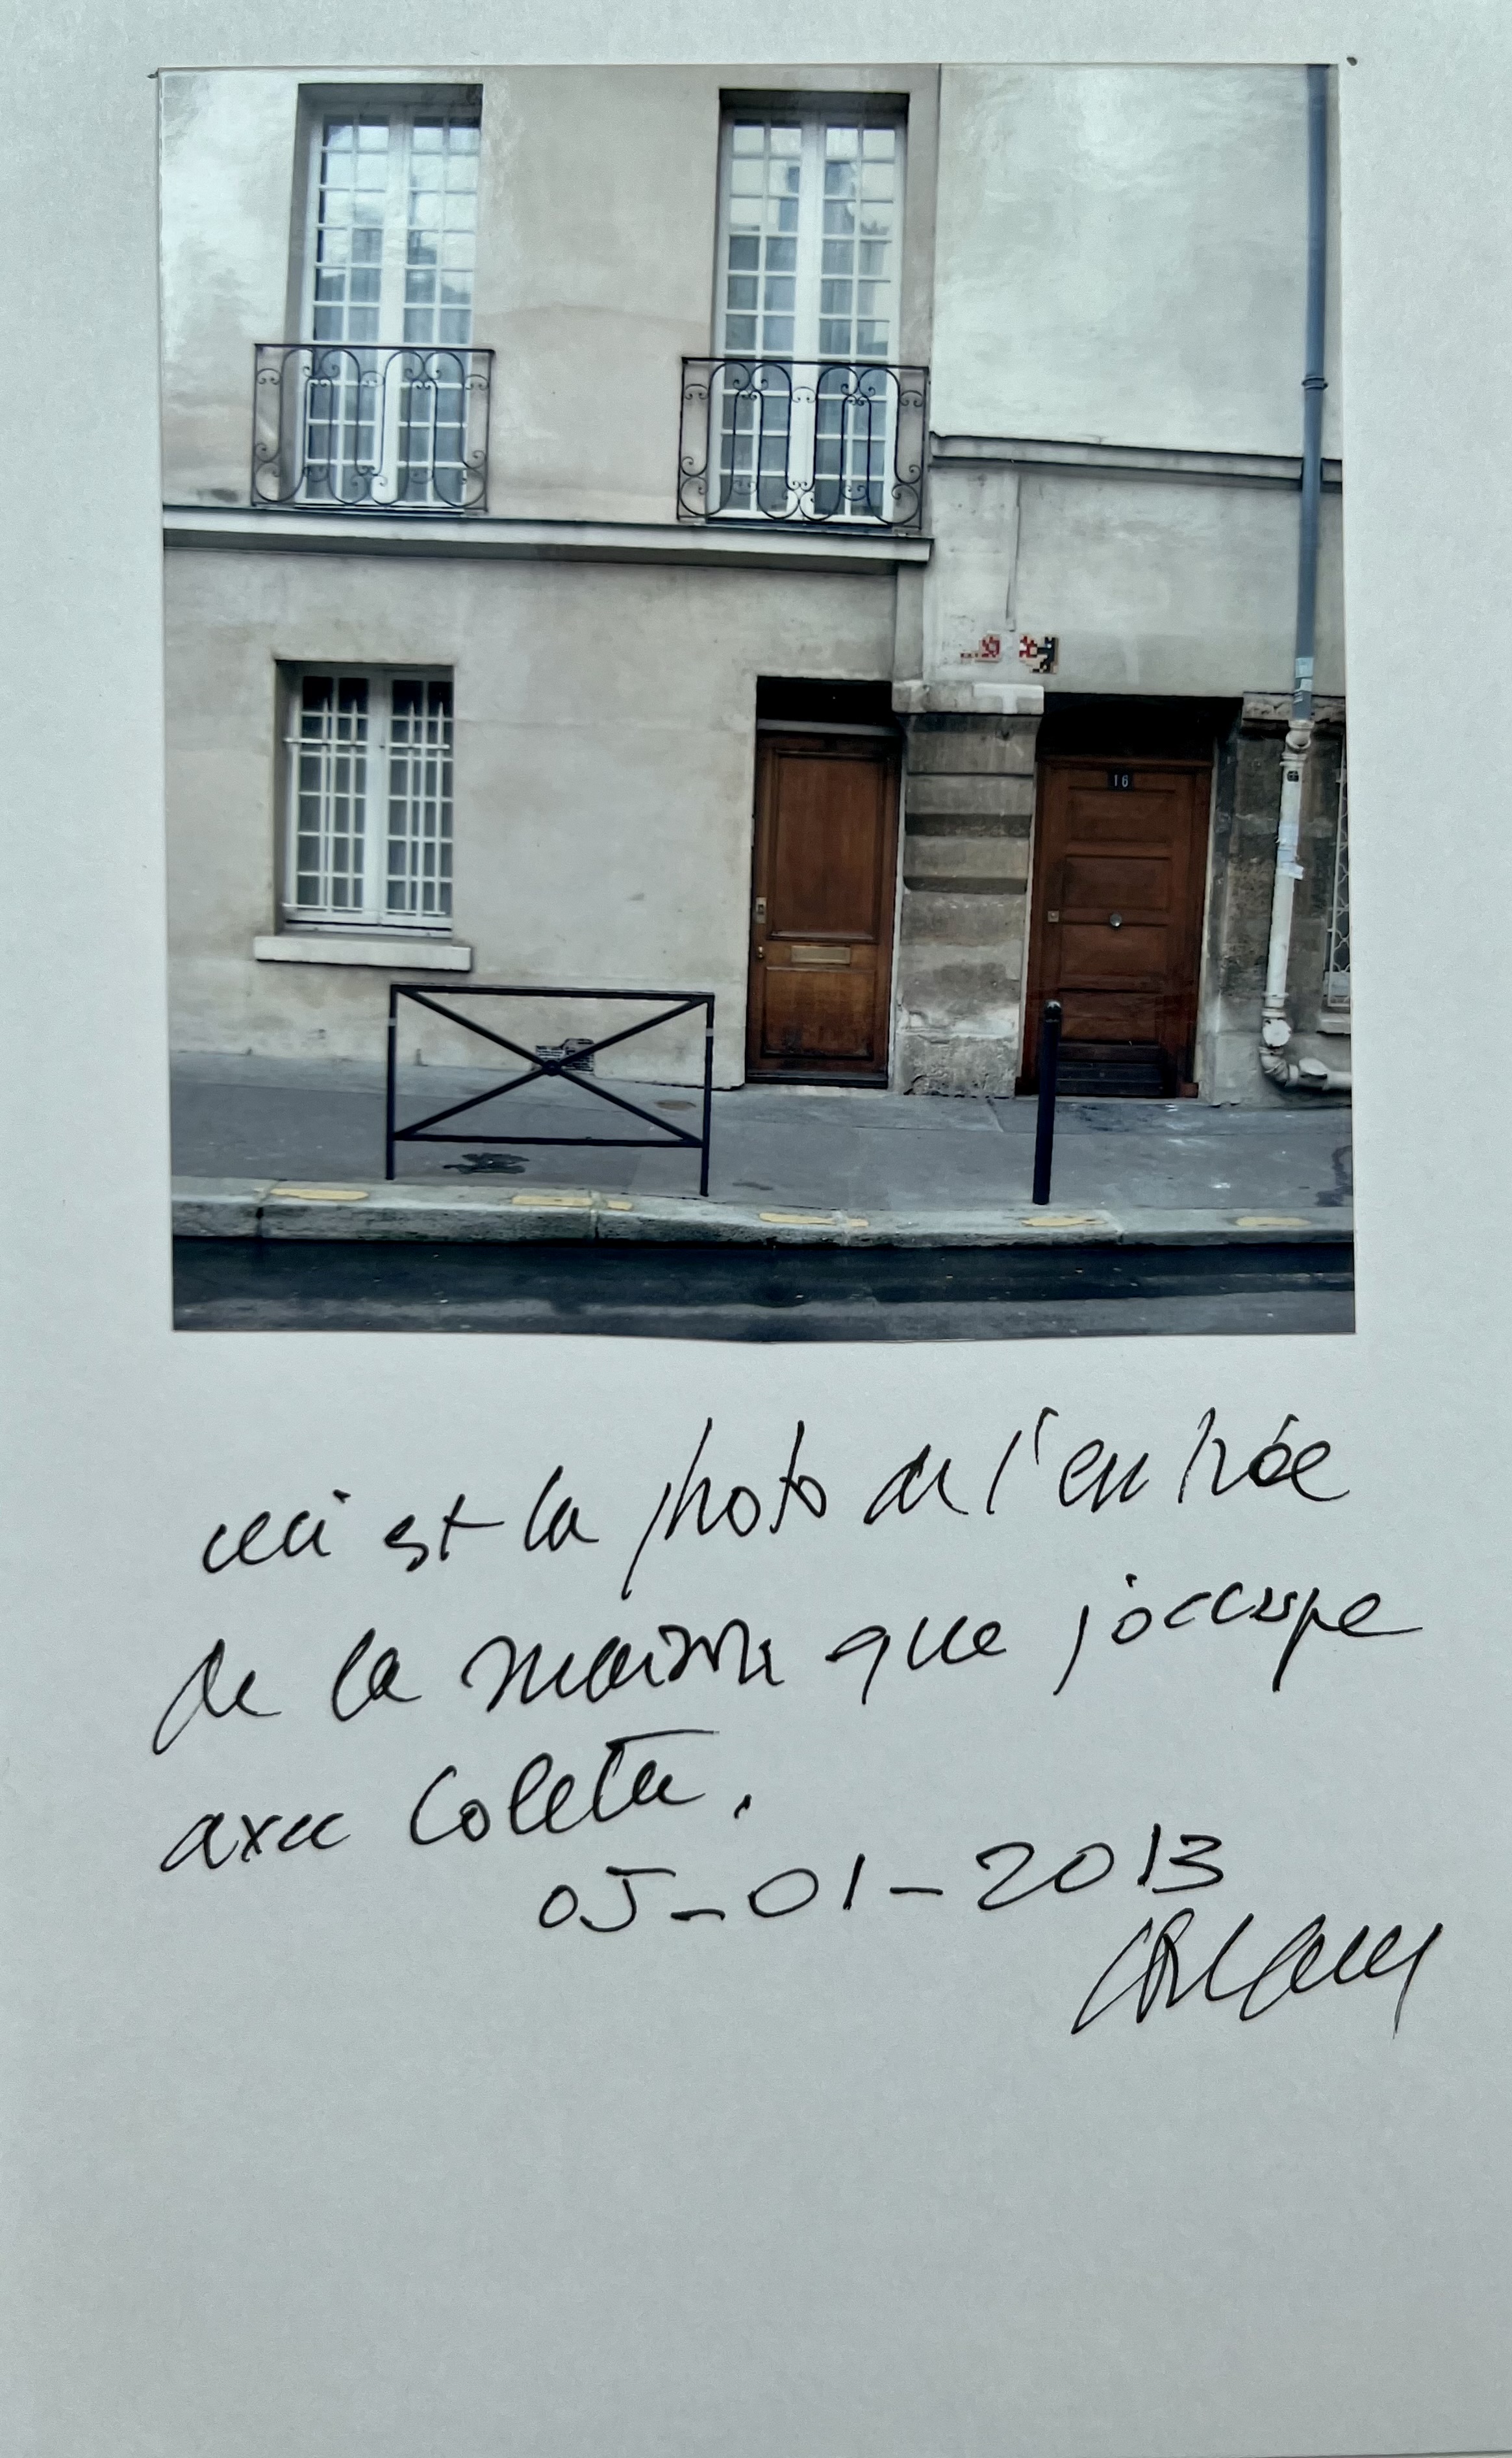 16
ceci est la photo de l'entrée
de la maison que j'occupe
avec Colette.
05-01-2013